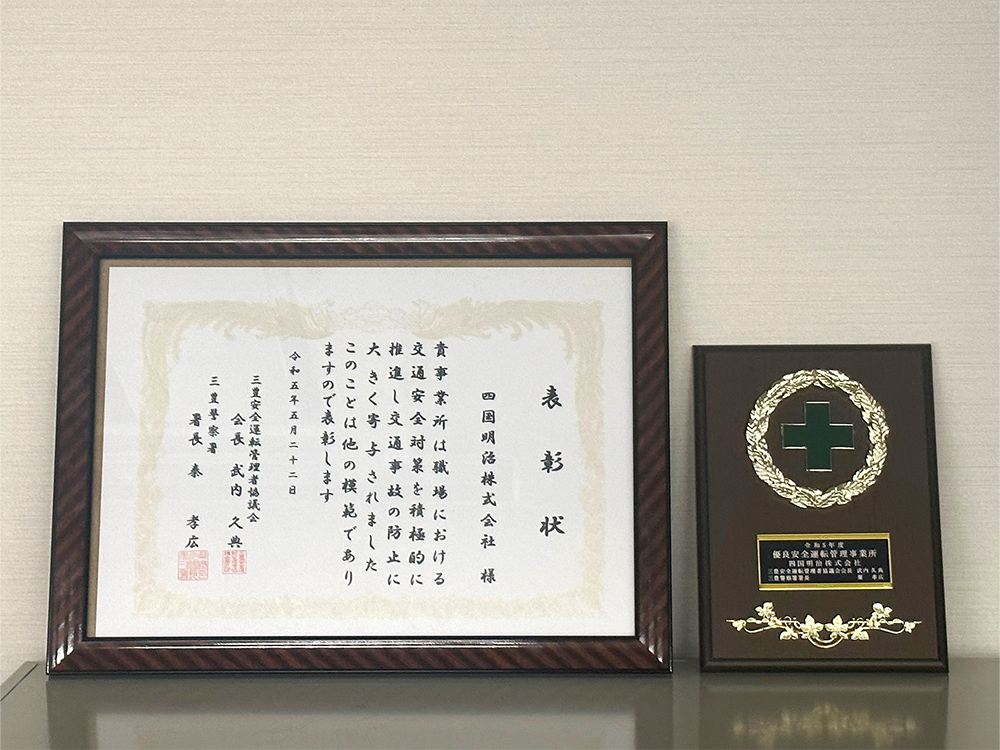 表彰状
四国明治株式会社 様
貴事業所は職場における
交通安全対策を積極的に
推進し交通事故の防止に
大きく寄与されました
このことは他の模範であり
ますので表彰します
令和五年五月二十二日
三豊安全運転管理者協議会
会長 武内 久典
三豊警察署
署長 秦 孝広
令和5年度
優良安全運転管理事業所
四国明治株式会社
三豊安全運転管理者協議会会長 武内久典
三豊警察署署長 秦 孝広